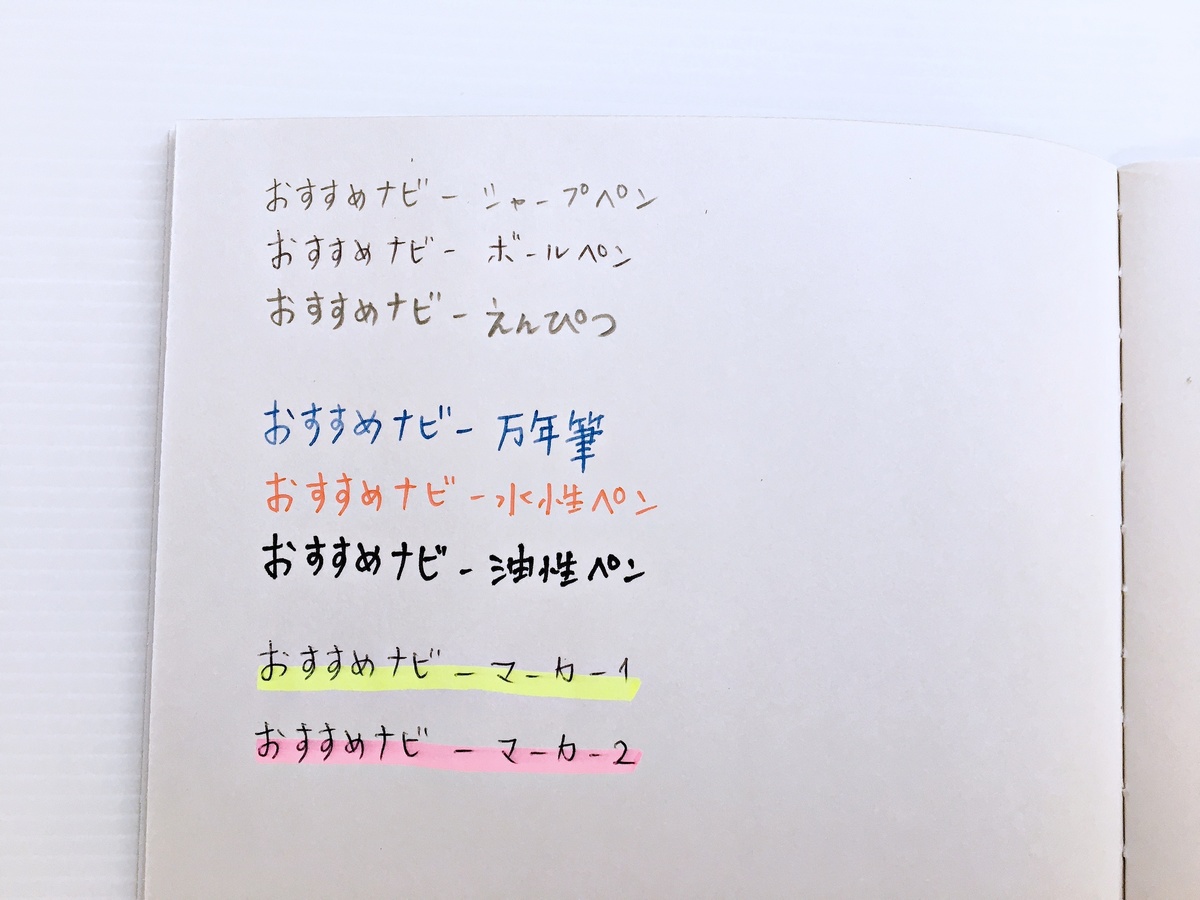 おすすめナビー シャープペン
おすすめナビー ボールペン
おすすめナビー えんぴつ
おすすめナビー 万年筆
おすすめナビー水性ペン
おすすめナビー 油性ペン
おすすめナビー マーカー1
おすすめナビー マーカー2